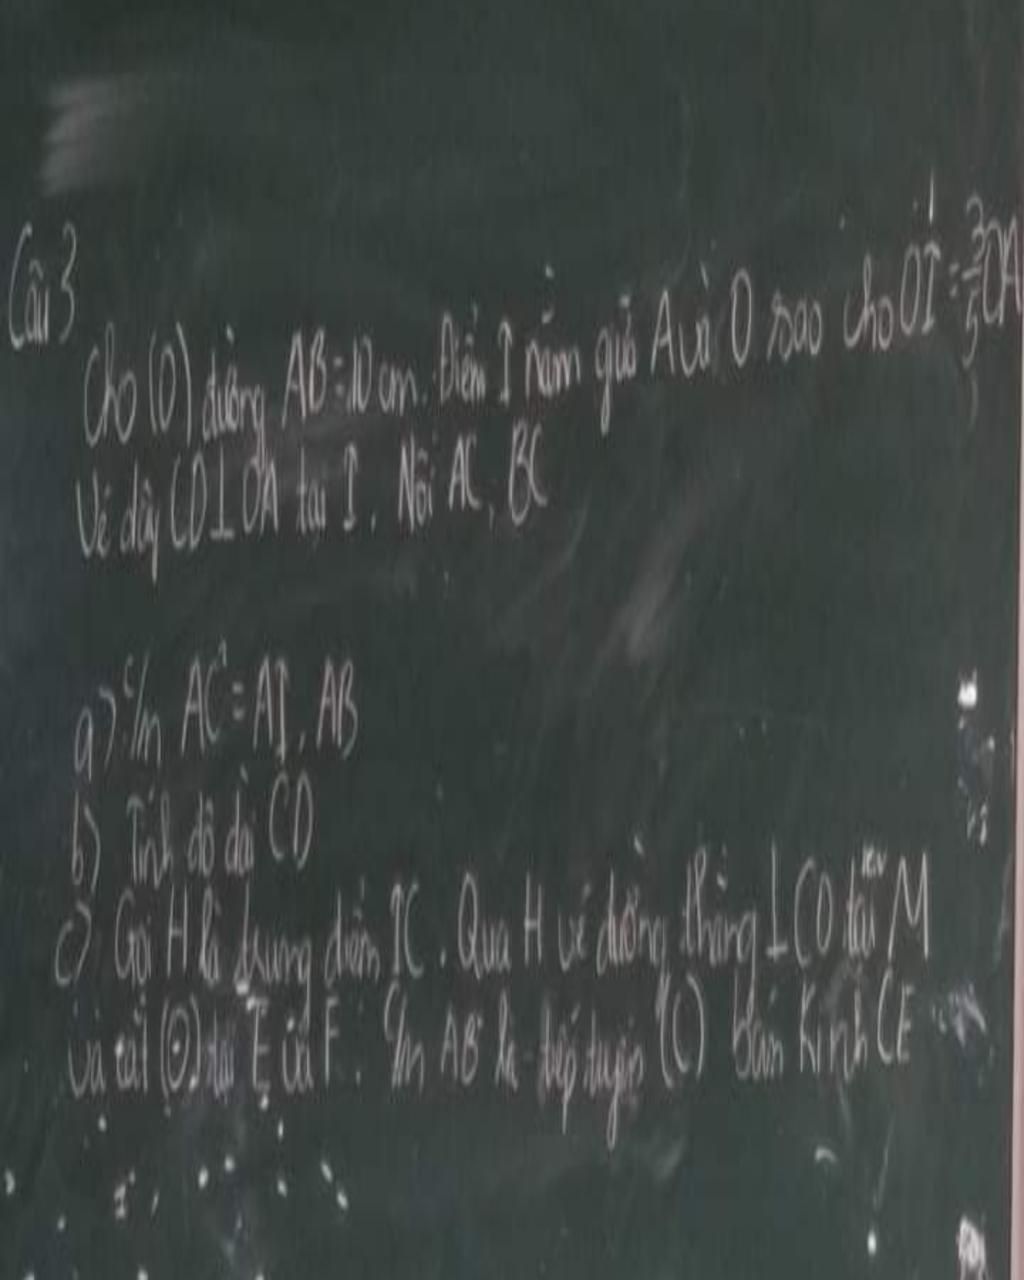 Câu 3
Cho (O) đường AB=10 cm. Điểm I nằm giữa A và O sao cho OI = 3/5 OA
Vẽ dây CD ⊥ OA tại I. Nối AC, BC
a) C/m AC² = AI. AB
b) Tính độ dài CD
c) Gọi H là trung điểm IC. Qua H vẽ đường thẳng ⊥ CO tại M
và cắt (O) tại E và F. C/m AB là tiếp tuyến (C) bán kính CE